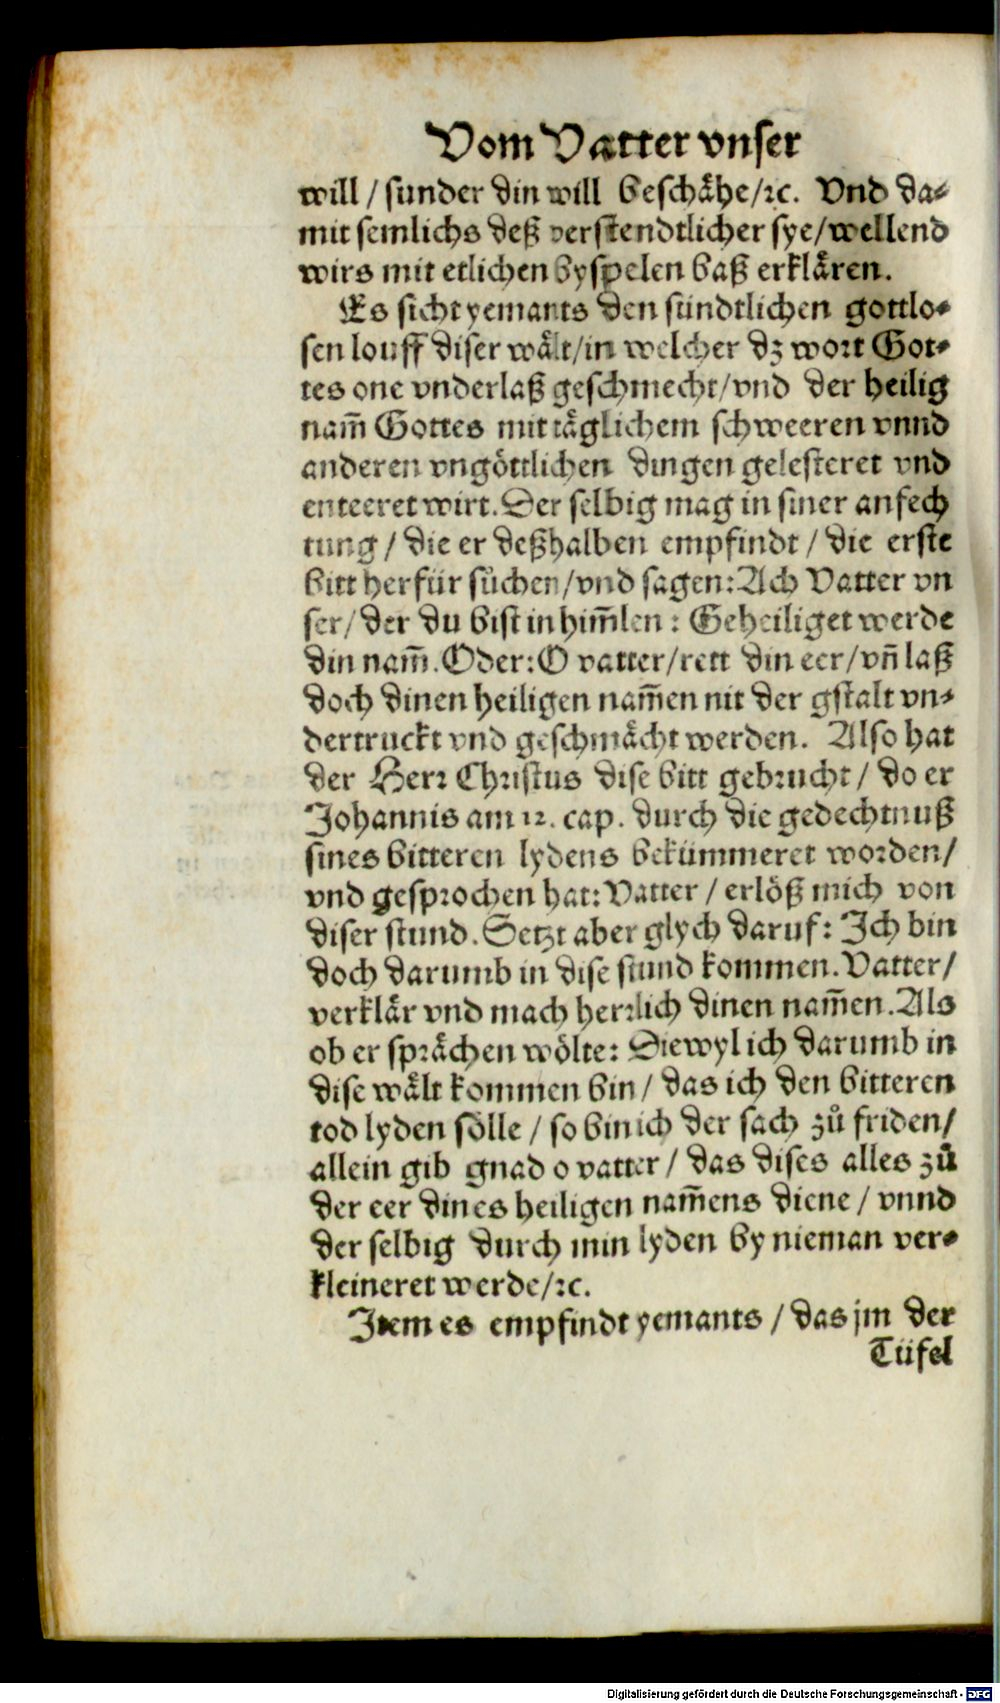 Vom Vatter vnser
will / sunder din will beschähe/ꝛc. Vnd da-
mit semlichs deß verstendtlicher sye/wellend
wirs mit etlichen byspelen baß erklären.
Es sicht yemants den sündtlichen gottlo-
sen louff diser wält/in welcher dz wort Got-
tes one vnderlaß geschmecht/vnd der heilig
nam̃ Gottes mit täglichem schweeren vnnd
anderen vngöttlichen dingen gelesteret vnd
enteeret wirt. Der selbig mag in siner anfech
tung / die er deßhalben empfindt / die erste
bitt herfür sůchen/vnd sagen: Ach Vatter vn
ser/ der du bist in him̃len: Geheiliget werde
din nam̃. Oder: O vatter/rett din eer/vñ laß
doch dinen heiligen nam̃en nit der gstalt vn-
dertruckt vnd geschmächt werden. Also hat
der Herr Christus dise bitt gebrucht / do er
Johannis am 12. cap. durch die gedechtnuß
sines bitteren lydens bekümmeret worden/
vnd gesprochen hat: Vatter / erlöß mich von
diser stund. Setzt aber glych daruf: Ich bin
doch darumb in dise stund kommen. Vatter/
verklär vnd mach herrlich dinen nam̃en. Als
ob er sprächen wölte: Diewyl ich darumb in
dise wält kommen bin / das ich den bitteren
tod lyden sölle / so bin ich der sach zů friden/
allein gib gnad o vatter / das dises alles zů
der eer dines heiligen nam̃ens diene / vnnd
der selbig durch min lyden by nieman ver-
kleineret werde/ꝛc.
Item es empfindt yemants / das jm der
Tüfel
Digitalisierung gefördert durch die Deutsche Forschungsgemeinschaft - DFG